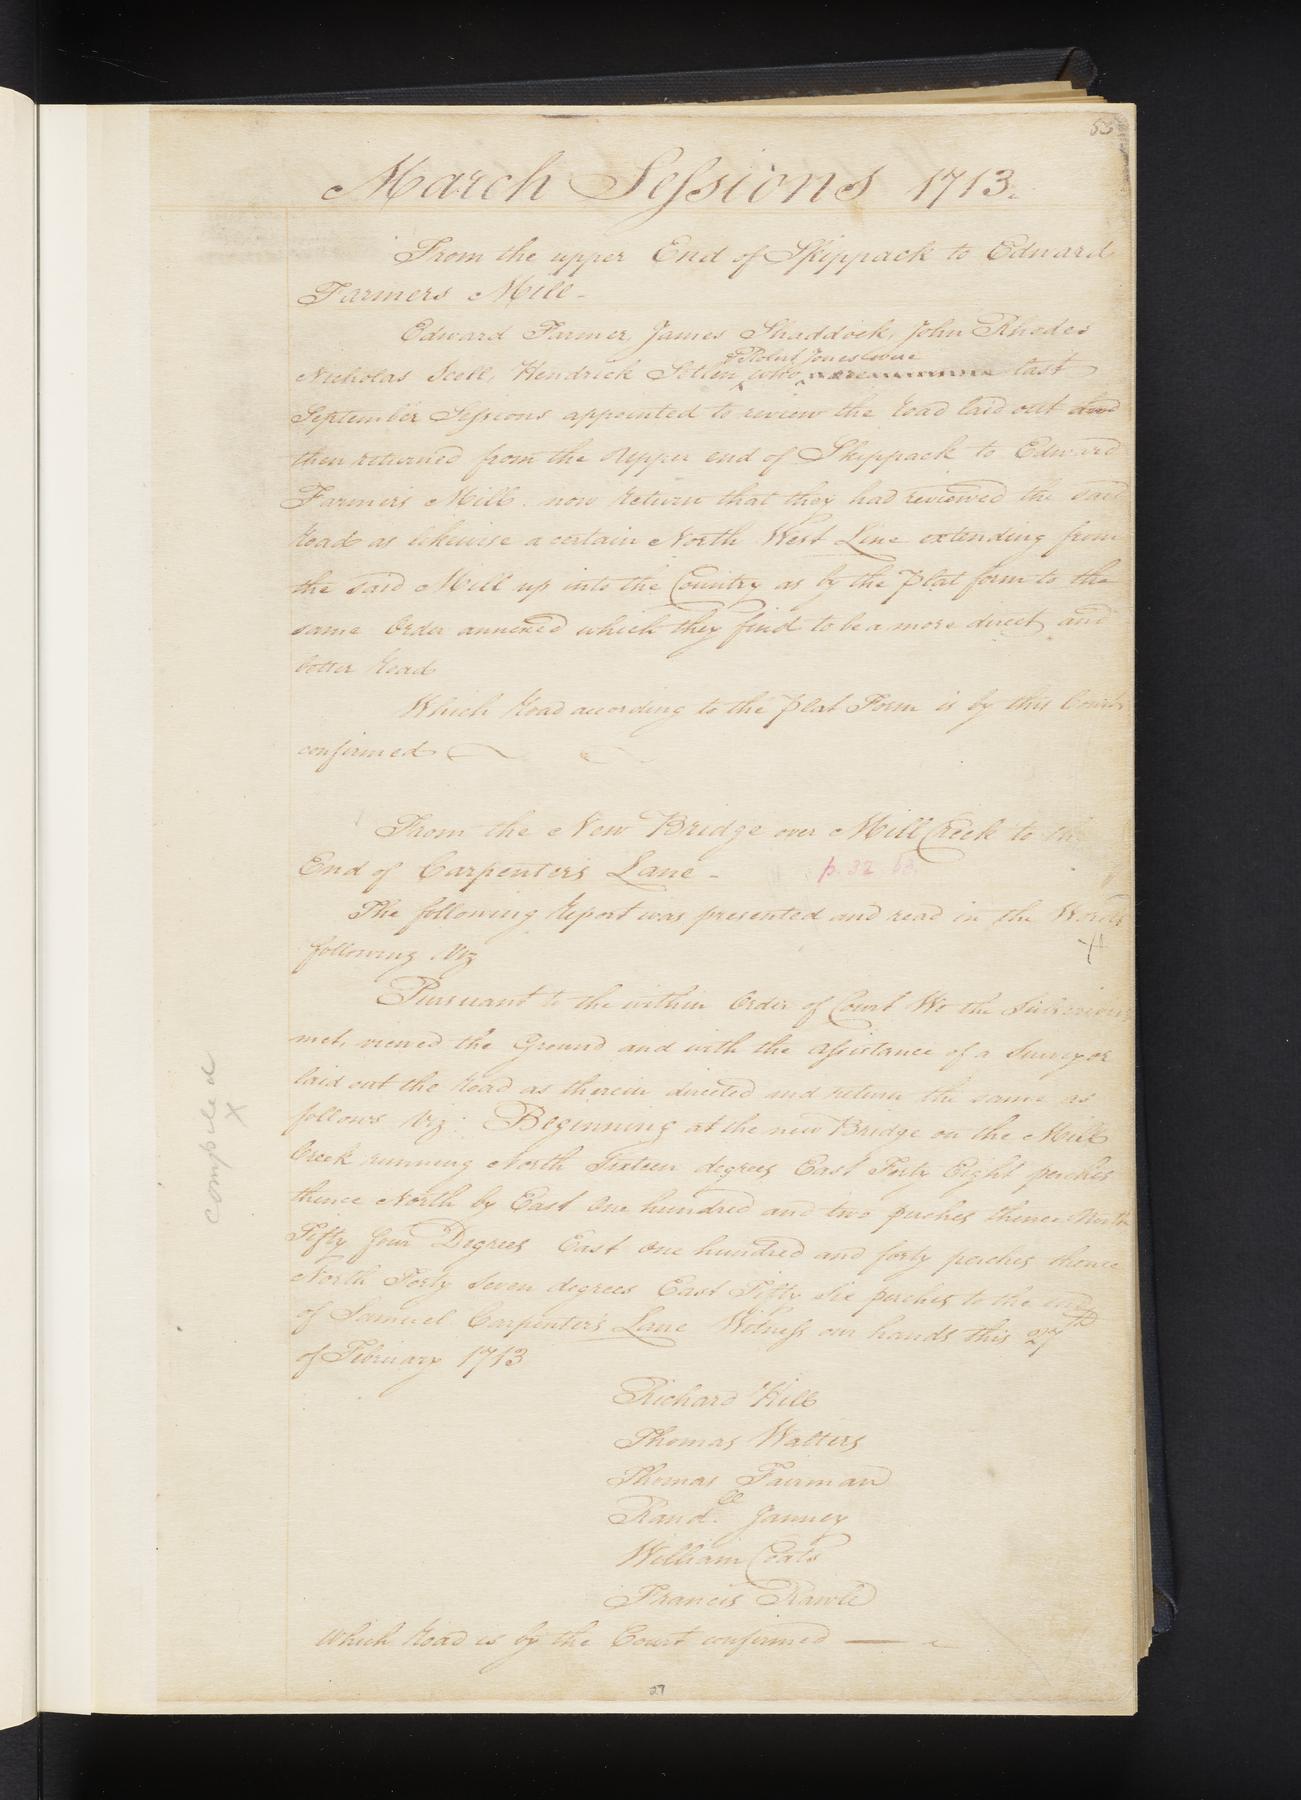 53
March Sessions 1713.
From the upper End of Skippack to Edward
Farmers Mill -
Edward Farmer, James Shaddock, John Rhodes
& Robert Jones were
Nicholas Scell, Hendrick Sellen who last
September Sessions appointed to review the Road laid out and
then returned from the Upper end of Skippack to Edward
Farmer's Mill now Return that they had reviewed the said
Road as likewise a certain North West Line extending from
the said Mill up into the Country as by the Plat form to the
same Order annexed which they find to be a more direct and
better Road
Which Road according to the Plat Form is by this Court
confirmed
From the New Bridge over Mill Creek to the
End of Carpenter's Lane -
p. 32 63.
The following Report was presented and read in the Words
following Viz
Pursuant to the within Order of Court We the Subscribers
met, viewed the Ground and with the Assistance of a Surveyor
laid out the Road as therein directed and return the same as
follows Viz: Beginning at the new Bridge on the Mill
Creek running North Sixteen degrees East Forty Eight perches
thence North by East One hundred and two perches thence North
Fifty four Degrees East One hundred and forty perches thence
North Forty Seven degrees East Fifty Six perches to the end
of Samuel Carpenter's Lane Witness our hands this 27th
of February 1713
Richard Hill
Thomas Walters
Thomas Fairman
Randll. Janney
William Coats
Francis Rawle
Which Road is by the Court confirmed
compiled
x
27